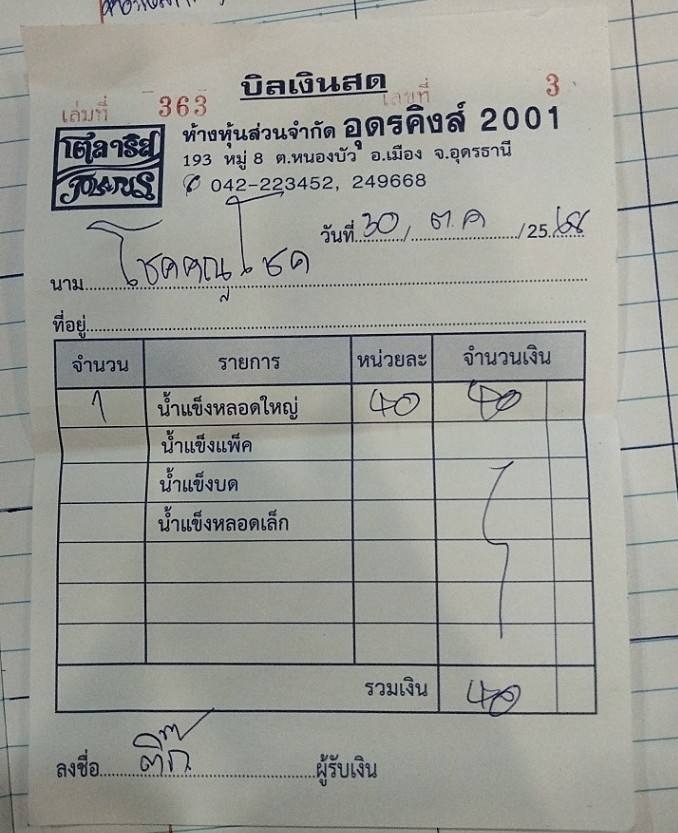 บิลเงินสด
เล่มที่ 363 เลขที่ 3
ห้างหุ้นส่วนจำกัด อุดรคิงส์ 2001
193 หมู่ 8 ต.หนองบัว อ.เมือง จ.อุดรธานี
042-223452, 249668
วันที่ 30 / ต.ค / 25 68
นาม โชคคูณโชค
ที่อยู่
จำนวน รายการ หน่วยละ จำนวนเงิน
1 น้ำแข็งหลอดใหญ่ 40 40
น้ำแข็งแพ็ค
น้ำแข็งบด
น้ำแข็งหลอดเล็ก
รวมเงิน 40
ลงชื่อ ติ๊ก ผู้รับเงิน